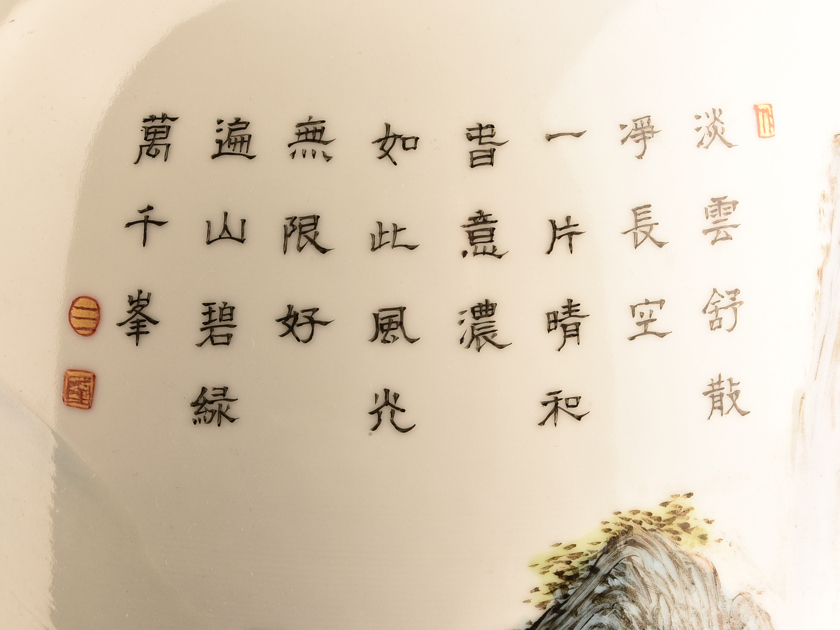 淡雲舒散
凈長空
一片晴和
春意濃
如此風光
無限好
遍山碧綠
萬千峯